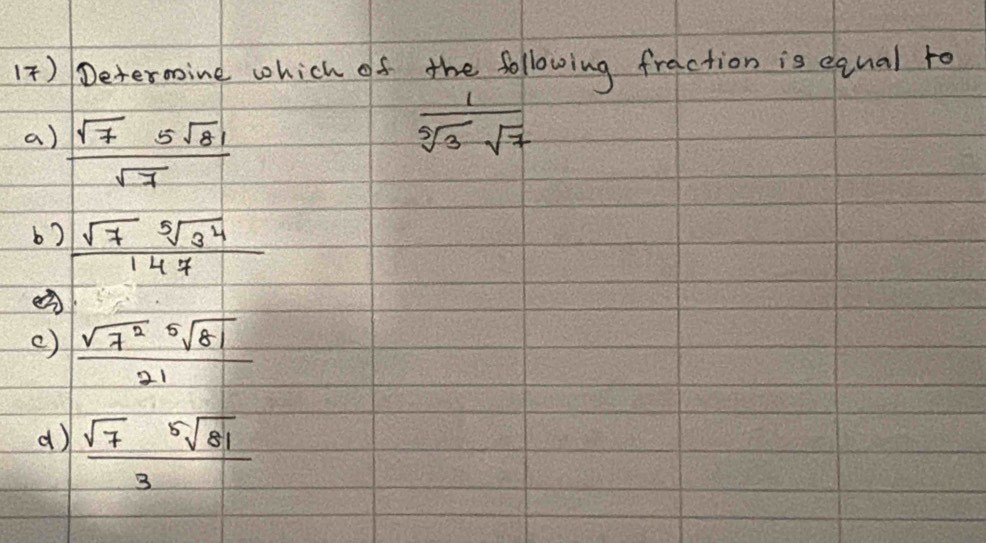 17) Determine which of the following fraction is equal to
1 / ⁵√3 √7
a) √7 5√81 / √7
b) √7 ⁵√3⁴ / 147
c) √7² ⁵√81 / 21
d) √7 ⁵√81 / 3